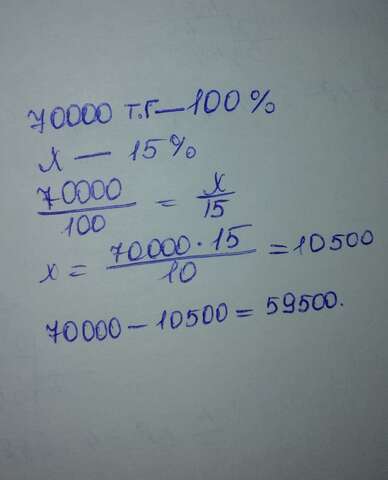 70000 т.г — 100 %
x — 15 %
70000/100 = x/15
x = 70000 · 15/10 = 10500
70000 — 10500 = 59500.